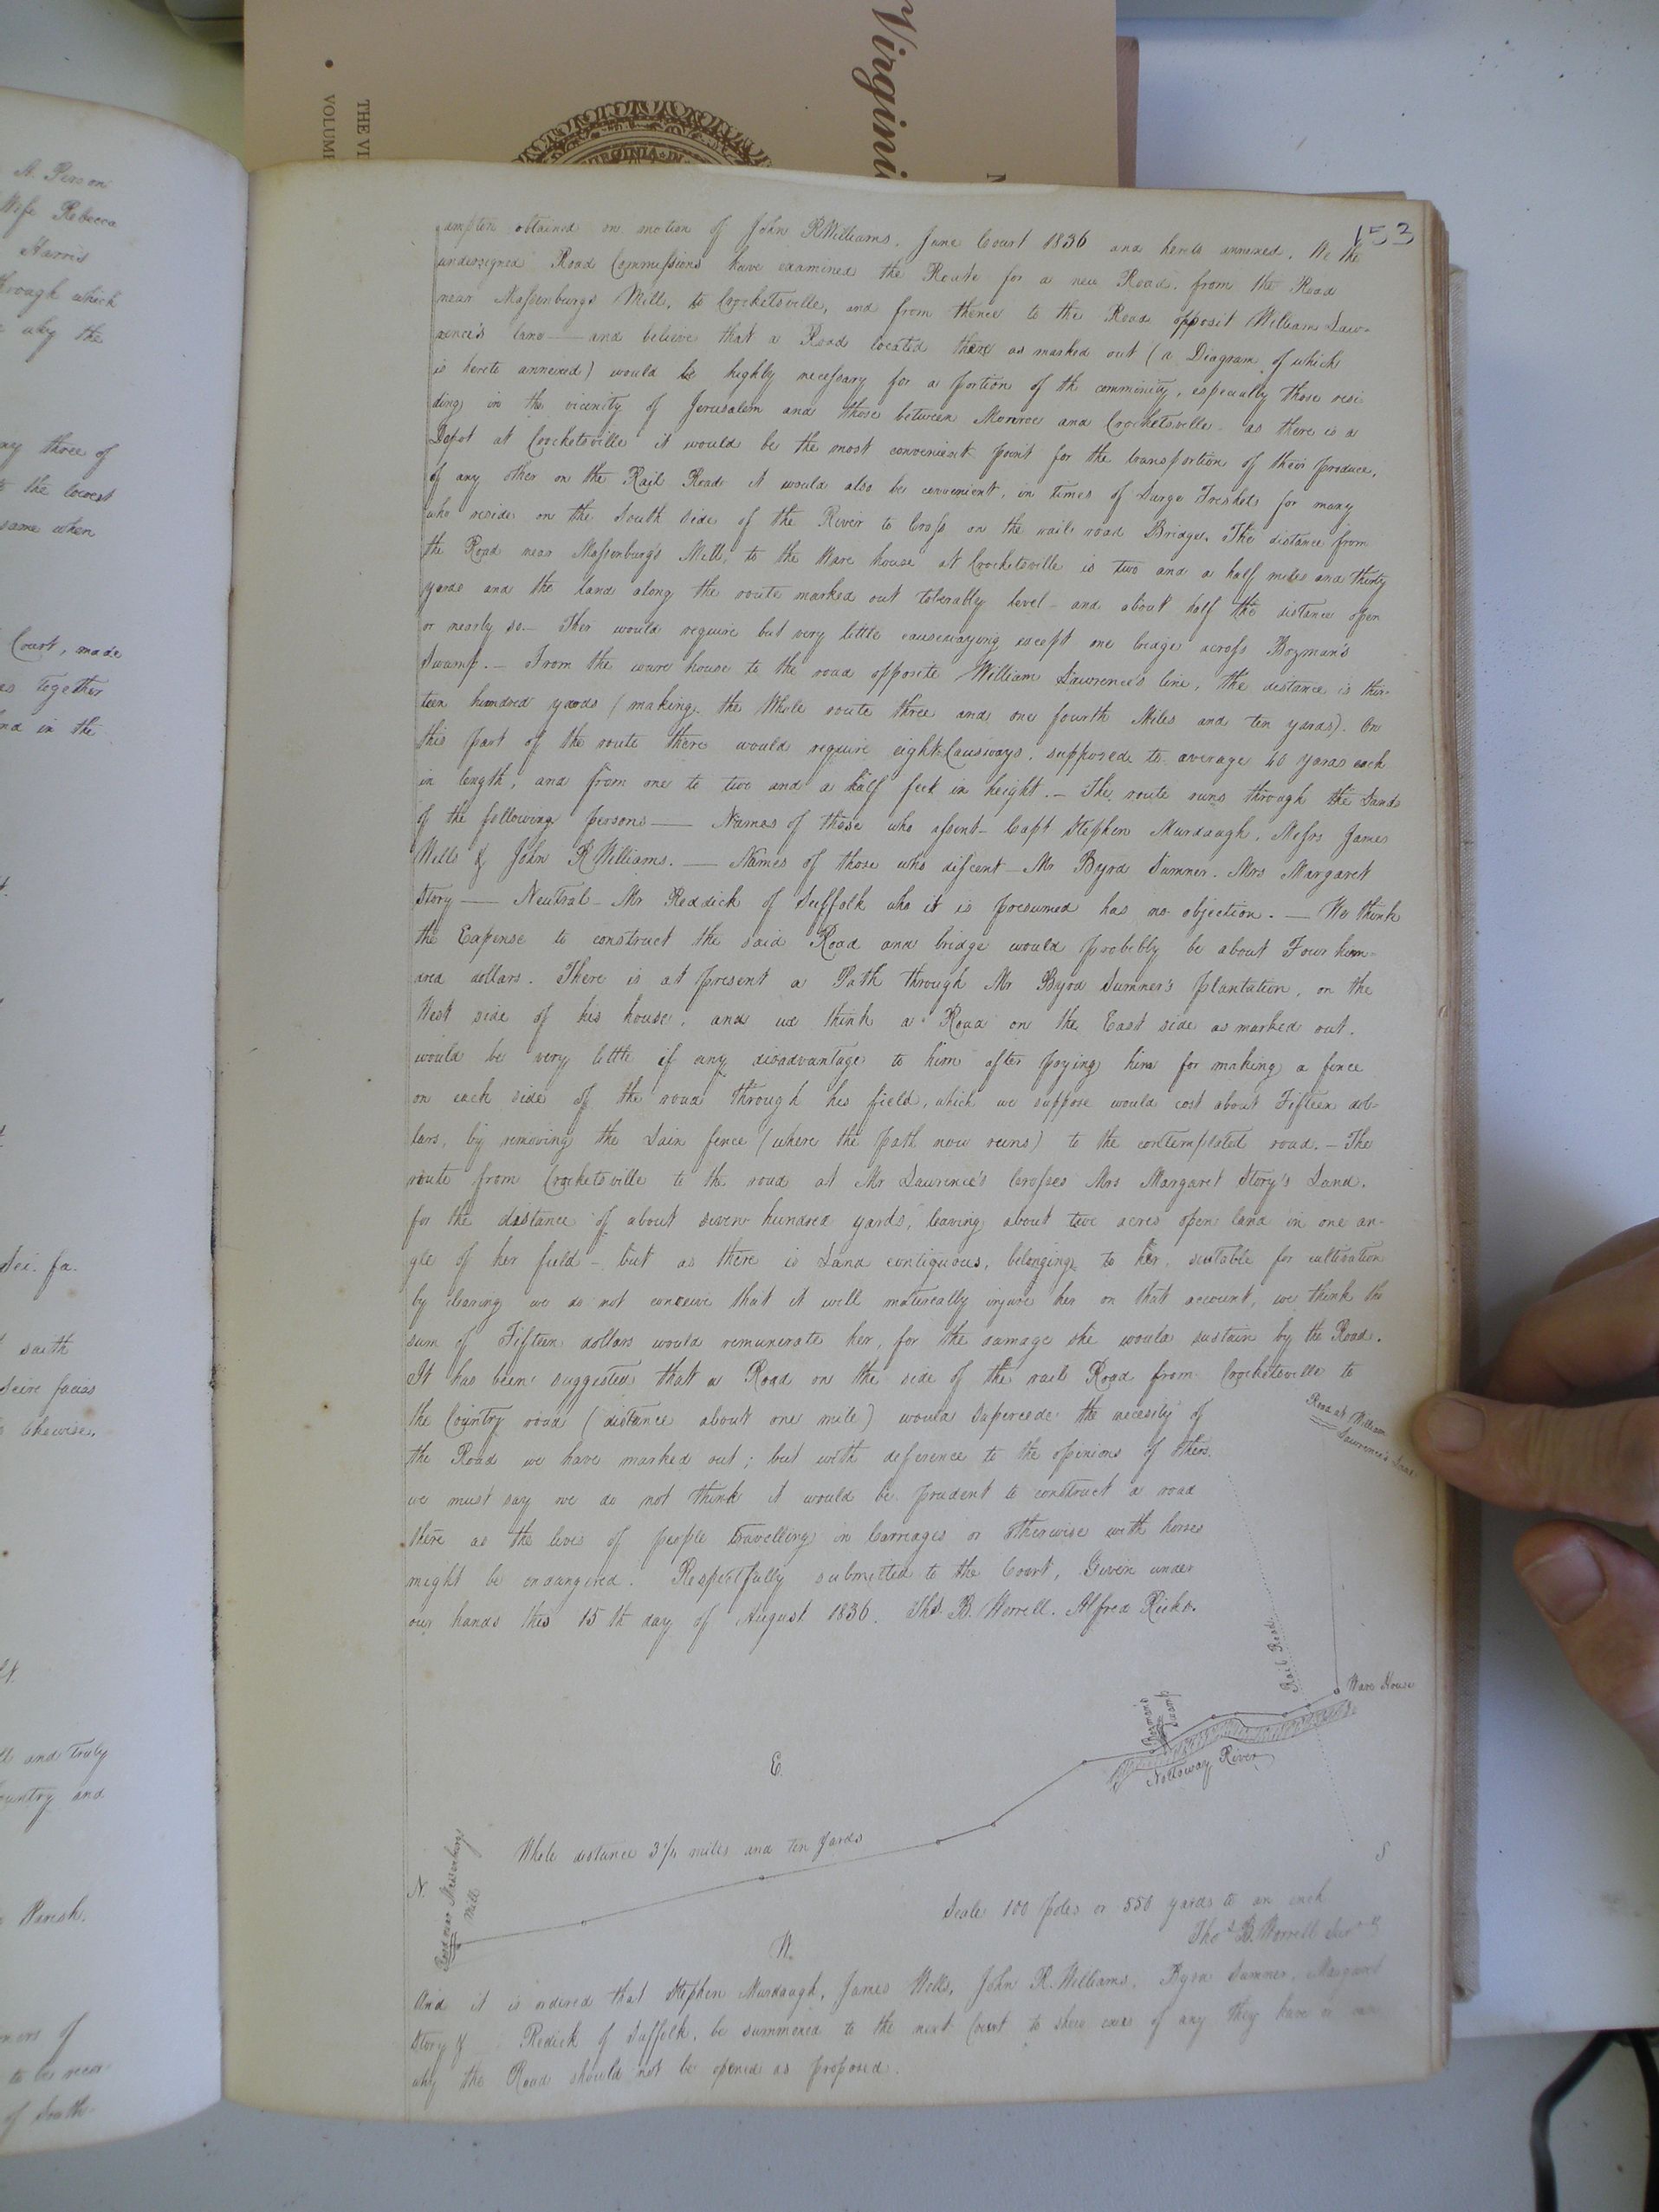 Virgini
THE VI
VOLUME
VIRGINIA
A. Person
Wife Rebecca
Harris
through which
why the
any three of
the lowest
same when
Court, made
together
and in the
Sci. fa.
saith
Scire facias
likewise,
and truly
Country and
Parish.
of
to be recor
of South-
153
ampton obtained on motion of John R Williams. June Court 1836 and hereto annexed, We the
undersigned Road Commissions have examined the Route for a new Road. from the Road
near Massenburgs Mill, to Crocketsville, and from thence to the Road opposit William Law-
rence's lane — and believe that a Road located there as marked out (a Diagram of which
is hereto annexed) would be highly necessary for a portion of th comminity, especially those resi
ding in the vicinity of Jerusalem and those between Monroe and Crocketsville as there is a
Depot at Crocketsville it would be the most convenient point for the transportion of their produce,
of any other on the Rail Road it would also be convenient, in times of Large Freshets for many
who reside on the South side of the River to Cross on the rail road Bridge. The distance from
the Road near Massenburg's Mill, to the Ware house at Crocketsville is two and a half miles and thirty
yards and the land along the route marked out tolerably level – and about half the distance open
or nearly so. – Ther would require but very little causewaying except one bridge across Bozman's
Swamp. – From the ware house to the road opposite William Lawrence's line, the distance is thir-
teen hundred yards (making the Whole route three and one fourth Miles and ten yards). On
this part of the route there would require eight Causways, supposed to average 40 yards each
in length, and from one to two and a half feet in height. – The route runs through the Lands
of the following persons — Names of those who assent – Capt Stephen Murdaugh, Messrs James
Wells & John R Williams. — Names of those who discent – Mr Byrd Sumner. Mrs Margaret
Story — Neutral – Mr Reddick of Suffolk who it is presumed has no objection. — We think
the Expense to construct the said Road and bridge would probibly be about Four hun-
dred dollars. There is at present a Path through Mr Byrd Sumner's plantation, on the
West side of his house, and we think a Road on the East side as marked out.
would be very little if any disadvantage to him after paying him for making a fence
on each side of the road through his field, which we suppose would cost about Fifteen dol-
lars, by removing the Lain fence (where the path now runs) to the contemplated road. – The
route from Crocketsville to the road at Mr Lawrence's Crosses Mrs Margaret Story's Land.
for the distance of about seven hundred yards, leaving about two acres open land in one an-
gle of her field – but as there is Land contiguous, belonging to her, suitable for cultivation
by clearing we do not conceive that it will matireally injure her on that account, we think the
sum of Fifteen dollars would remunerate her, for the damage she would sustain by the Road.
It has been suggested that a Road on the side of the rail Road from Crocketsville to
the Country road (distance about one mile) would supercede the necesity of
the Road we have marked out; but with deference to the opinions of others.
we must say we do not think it would be prudent to construct a road
there as the lives of people travelling in Carriages or otherwise with horses
might be endangired. Respectfully submitted to the Court, Given under
our hands this 15th day of August 1836. Thos. B. Worrell. Alfred Ricks.
Road at William
Lawrence's Lane
Rail Road
Ware House
Bozman's
Swamp
Nottoway River
E.
Whole distance 3 1/4 miles and ten yards
N.
Road near Massenburgs
Mill
S
Scale 100 poles or 550 yards to an inch
Thos B. Worrell Survr
W.
And it is ordered that Stephen Murdaugh, James Wells, John R. Williams, Byrd Sumner, Margaret
Story & Redick of Suffolk, be summoned to the next Court to shew caus if any they have or can
why the Road should not be opened as proposed.